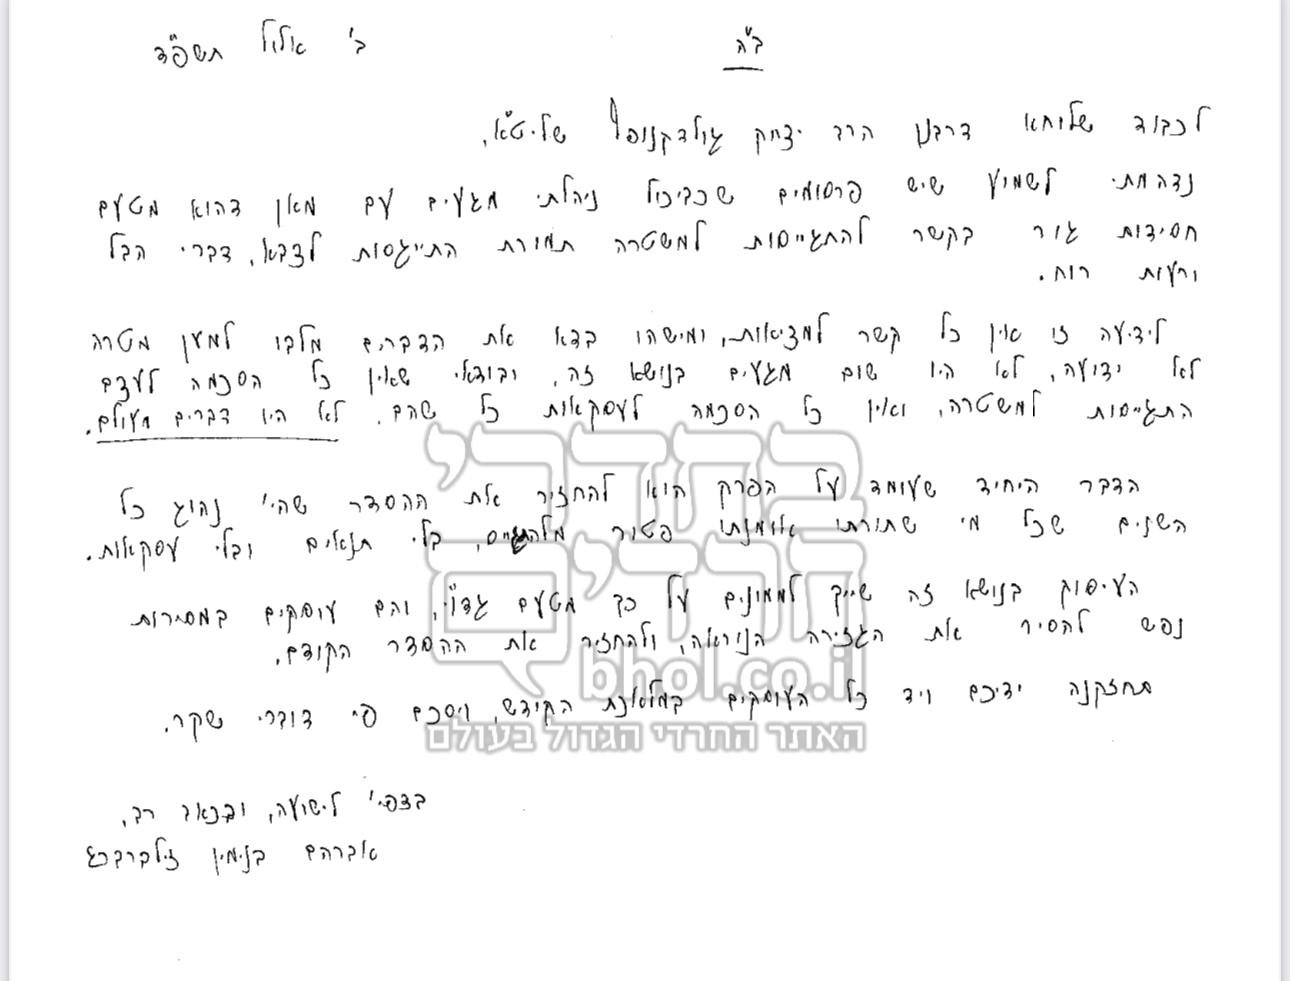 ב"ה
ב' אלול תשפ"ד
לכבוד שלוחא דרבנן הרב יצחק גולדקנופף שליט"א,
נדהמתי לשמוע שיש פרסומים שכביכול ניהלתי מגעים עם מאן דהוא מטעם
חסידות גור בקשר להתגייסות למשטרה תמורת התייגסות לצבא, דברי הבל
ורעות רוח.
לידיעה זו אין כל קשר למציאות, ומישהו בדא את הדברים מלבו למען מטרה
לא ידועה, לא היו שום מגעים בנושא זה, ובודאי שאין כל הסכמה לעצם
התגייסות למשטרה, ואין כל הסכמה לעסקאות כל שהם. לא היו דברים מעולם.
הדבר היחיד שעומד על הפרק הוא להחזיר את ההסדר שהי' נהוג כל
השנים שכל מי שתורתו אומנתו פטור מלהתגייס, בלי תנאים ובלי עסקאות.
העיסוק בנושא זה שייך לממונים על כך מטעם גדו"י, והם עוסקים במסירות
נפש להסיר את הגזירה הנוראה, ולהחזיר את ההסדר הקודם.
תחזקנה ידיכם ויד כל העוסקים במלאכת הקודש, ויסכם פי דוברי שקר.
בצפי' לישועה, ובכאב רב,
אברהם בנימין זילברברג
בחדרי
חרדים
bhol.co.il
האתר החרדי הגדול בעולם